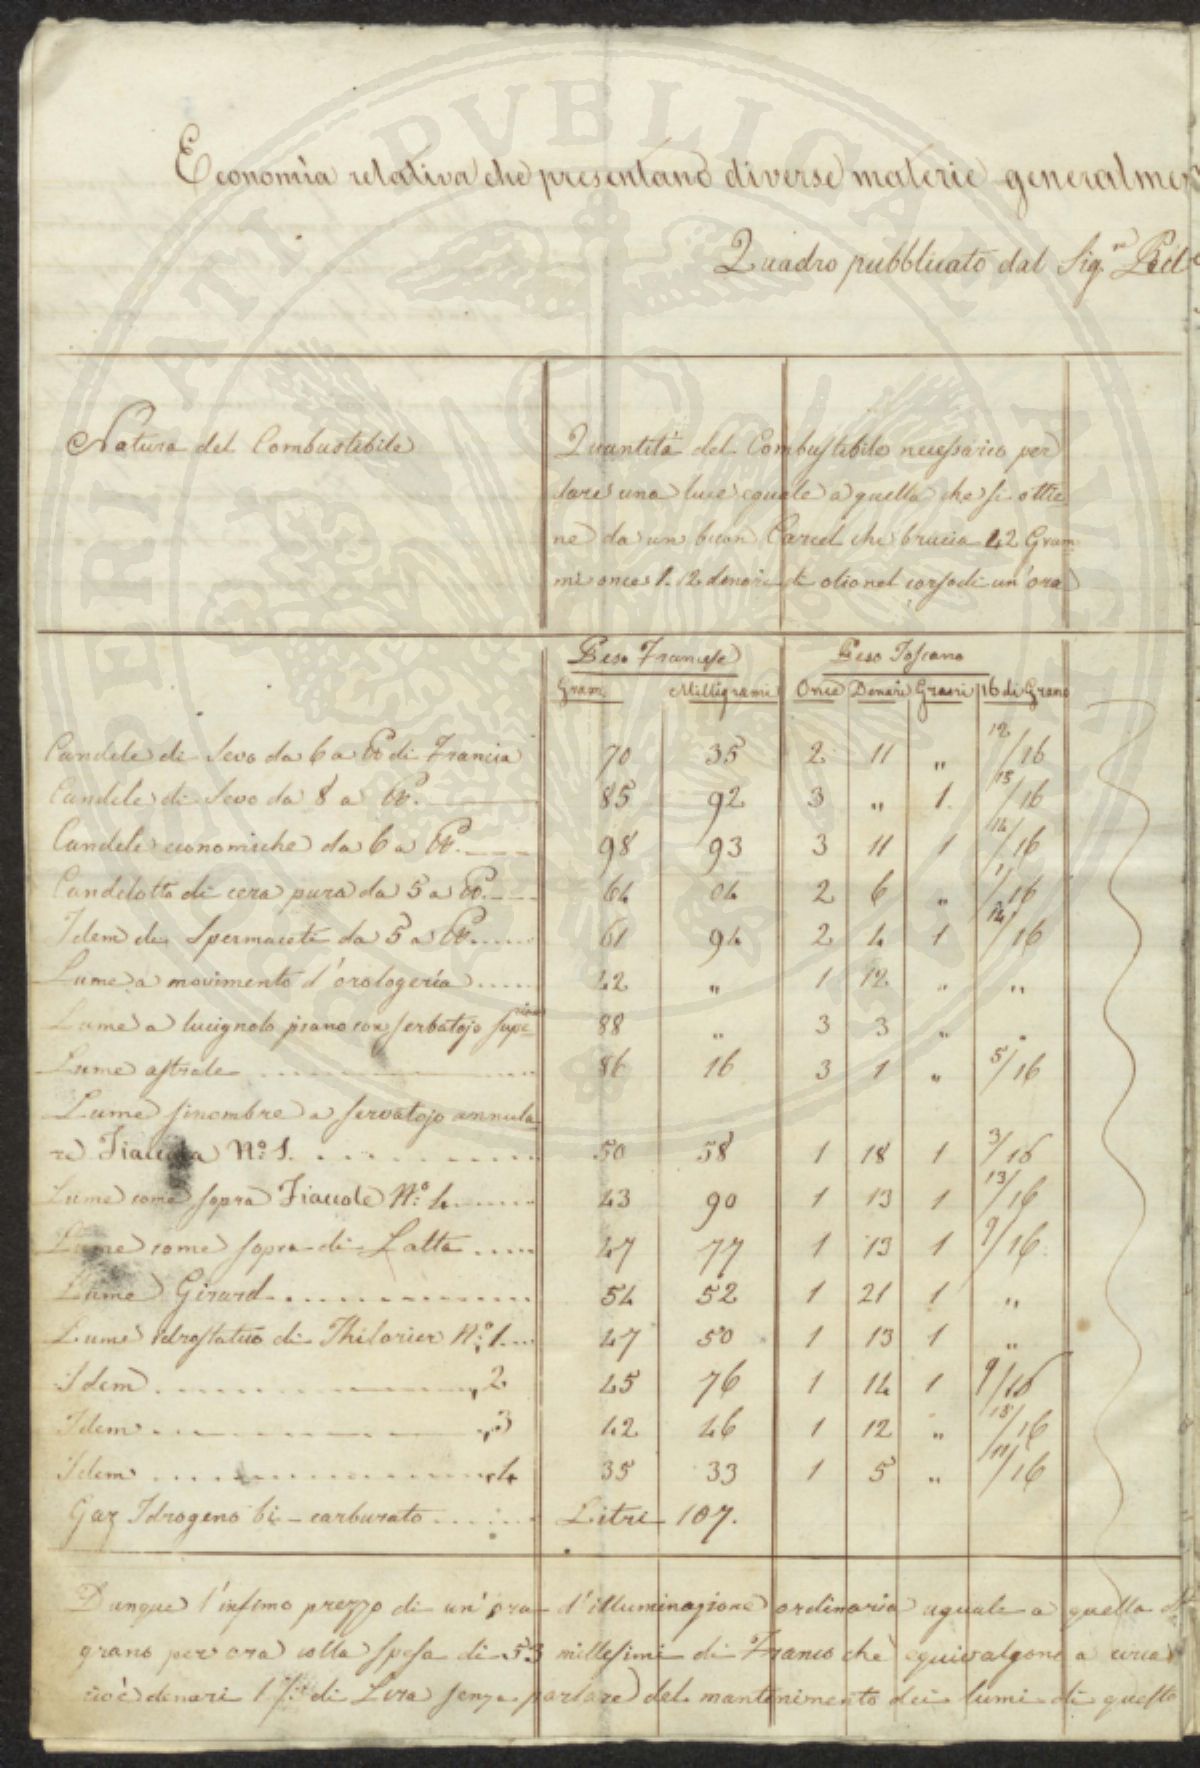 PERITATI PVBLICAE AVGENDAE
Economia relativa che presentano diverse materie generalmen
Quadro pubblicato dal Sig.r Pécl
Natura del Combustibile
Quantità del Combustibile necessario per
fare una luce eguale a quella che si ottie-
ne da un buon Carcel che brucia 42 Gram-
mi once 1. 12 denari di olio nel corso di un'ora
Peso Francese Peso Toscano
Gram. Milligrami Once Denari Grani 16 di Grano
Candele di Sevo da 6 a lb di Francia 70 35 2 11 " 12/16
Candele di Sevo da 8 a lb. 85 92 3 " 1. 15/16
Candele economiche da 6 a lb. 98 93 3 11 1 14/16
Candelotto di cera pura da 5 a lb. 64 04 2 6 " 1/16
Idem de Spermaceti da 5 a lb. 61 94 2 4 1 14/16
Lume a movimento d'orologeria 42 " 1 12 " "
Lume a lucignolo piano con serbatojo supe-riore 88 " 3 3 " "
Lume astrale 86 16 3 1 " 5/16
Lume sinombre a servatojo annula-
re Fiaccola N.o 1. 50 58 1 18 1 3/16
Lume come sopra Fiaccole N.o 4 43 90 1 13 1 13/16
Lume come sopra di Latta 47 77 1 13 1 9/16
Lume Girard 54 52 1 21 1 "
Lume idrostatico di Thilorier N.o 1. 47 50 1 13 1 "
Idem " 2 45 76 1 14 1 9/16
Idem " 3 42 46 1 12 " 15/16
Idem " 4 35 33 1 5 " 11/16
Gaz Idrogeno bi-carburato Litri 107.
Dunque l'infimo prezzo di un'ora d'illuminazione ordinaria uguale a quella di
grano per ora colla spesa di 53 millesimi di Franco che equivalgono a circa
cioè denari 1 di Lira senza parlare del mantenimento dei lumi di questo